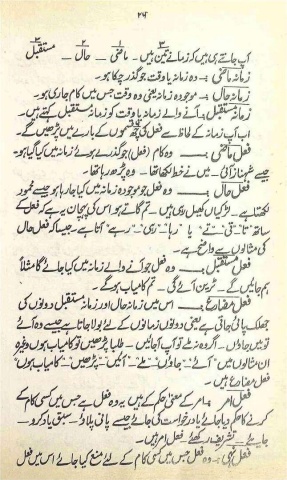 ۲۶
۱ ۲ ۳
آپ جانتے ہی ہیں کہ زمانے تین ہیں۔ ماضی – حال – مستقبل
زمانہ ماضی :۔ وہ زمانہ یا وقت جو گذر چکا ہو۔
زمانہ حال :۔ موجودہ زمانہ یعنی وہ وقت جس میں کام جاری ہو۔
زمانہ مستقبل :۔ آنے والے زمانہ یا وقت کو زمانہ مستقبل کہتے ہیں۔
اب آپ زمانہ کے لحاظ سے فعل کی قسموں کے بارے میں پڑھیں گے۔
فعل ماضی :۔ وہ کام (فعل) جو گذرے ہوئے زمانہ میں کیا گیا ہو۔
جیسے نماز آئی۔ میں نے خط لکھا تھا۔ وہ پڑھ رہا تھا۔
فعل حال :۔ وہ فعل جو موجودہ زمانہ میں کیا جا رہا ہو جیسے محمود
لکھتا ہے۔ لڑکیاں کھیل رہی ہیں۔ تم گاتے ہو اس کی پہچان یہ ہے کہ فعل کے
ساتھ "تا" "تی" "تے" یا "رہا" "رہی" "رہے" آتا ہے۔ جیسا کہ فعل حال
کی مثالوں سے واضح ہے۔
فعل مستقبل :۔ وہ فعل جو آنے والے زمانہ میں کیا جائے گا مثلاً
ہم جائیں گے۔ ٹرین آئے گی۔ تم کامیاب ہو گے۔
فعل مضارع :۔ اس میں زمانہ حال اور زمانہ مستقبل دونوں کی
جھلک پائی جاتی ہے یعنی دونوں زمانوں کے لئے بولا جاتا ہے جیسے وہ آئے
تو میں جاؤں۔ اگر وہ نہ ملے تو آپ آجائیں۔ طلبا پڑھیں تو کامیاب ہوں وغیرہ
ان مثالوں میں "آئے" "جاؤں" "ملے" "آئیں" "پڑھیں" "کامیاب ہوں"
فعل مضارع ہیں۔
فعل امر :۔ امر کے معنی حکم کے ہیں یہ وہ فعل ہے جس میں کسی کام کے
کرنے کا حکم دیا جائے یا درخواست کی جائے جیسے پانی پلاؤ۔ سبق یاد کرو۔
جائیے۔ تشریف رکھئے فعل امر ہیں۔
فعل نہی :۔ وہ فعل جس میں کسی کام کے لئے منع کیا جائے اس میں فعل